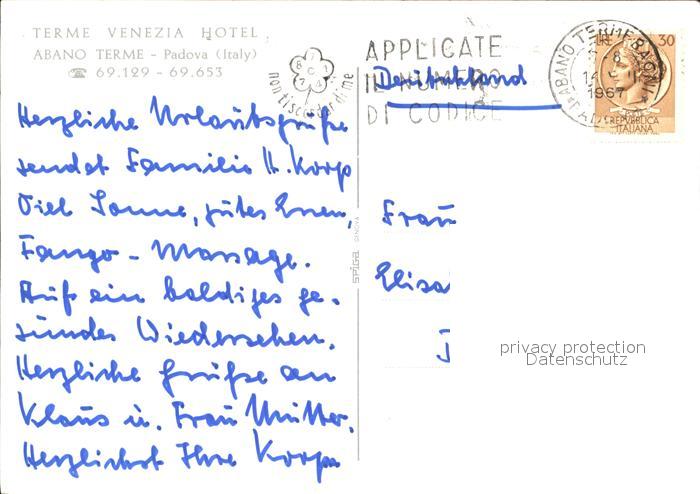 TERME VENEZIA HOTEL
ABANO TERME - Padova (Italy)
☎ 69.129 - 69.653
non ti scordar di me
APPLICATE
IL NUMERO
DI CODICE
Deutschland
ABANO TERME
1967
LIRE 30
REPVBBLICA
ITALIANA
Herzliche Urlaubsgrüße
sendet Familie H. Korp
Viel Sonne, gutes Essen,
Fango - Massage.
Auf ein baldiges ge-
sundes Wiedersehen.
Herzliche Grüße an
Klaus u. Frau Mutter.
Herzlichst Ihre Korps
SPIGA GENOVA
Frau
Elisa
privacy protection
Datenschutz